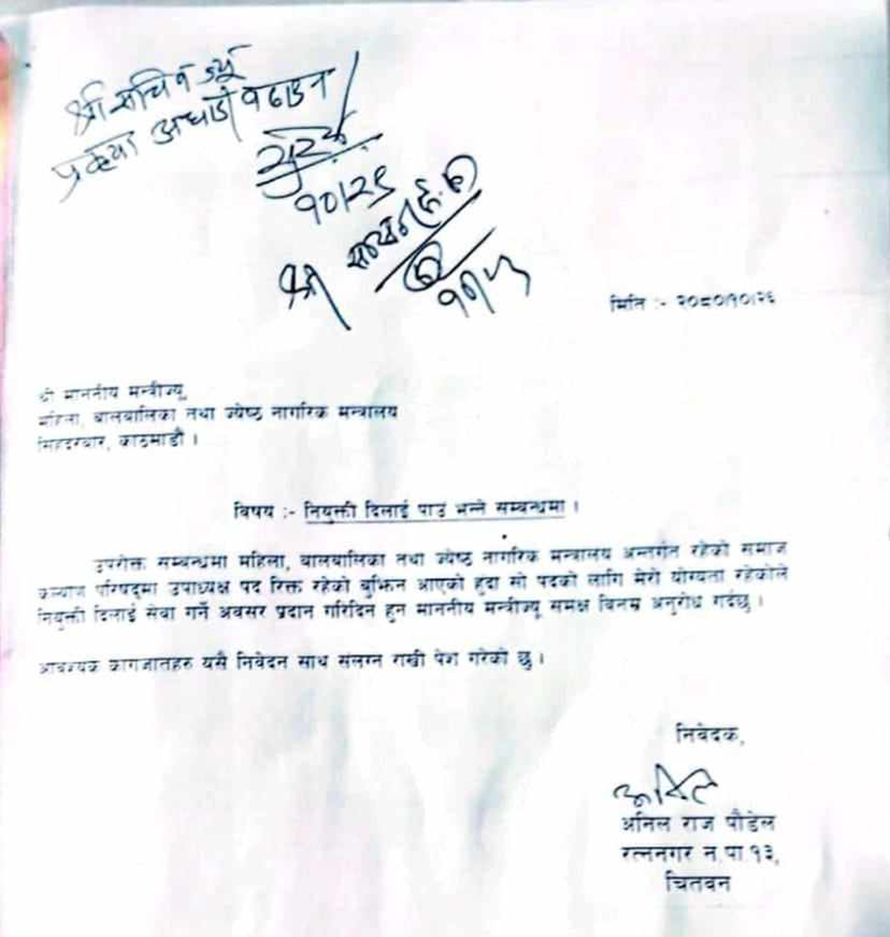 श्री सचिव ज्यू
प्रकृया अघाडी बढाउन
१०।२९
श्री
मिति :- २०८०।१०।२६
श्री माननीय मन्त्रीज्यू,
महिला, बालबालिका तथा ज्येष्ठ नागरिक मन्त्रालय
सिंहदरबार, काठमाडौं ।
विषय :- नियुक्ती दिलाई पाउं भन्ने सम्बन्धमा ।
उपरोक्त सम्बन्धमा महिला, बालबालिका तथा ज्येष्ठ नागरिक मन्त्रालय अन्तर्गत रहेको समाज
कल्याण परिषद्मा उपाध्यक्ष पद रिक्त रहेको बुझिन आएको हुदा सो पदको लागि मेरो योग्यता रहेकोले
नियुक्ती दिलाई सेवा गर्ने अवसर प्रदान गरिदिन हुन माननीय मन्त्रीज्यू समक्ष बिनम्र अनुरोध गर्दछु ।
आवश्यक कागजातहरु यसै निवेदन साथ संलग्न राखी पेश गरेको छु ।
निवेदक,
अनिल राज पौडेल
रत्ननगर न.पा.१३,
चितवन